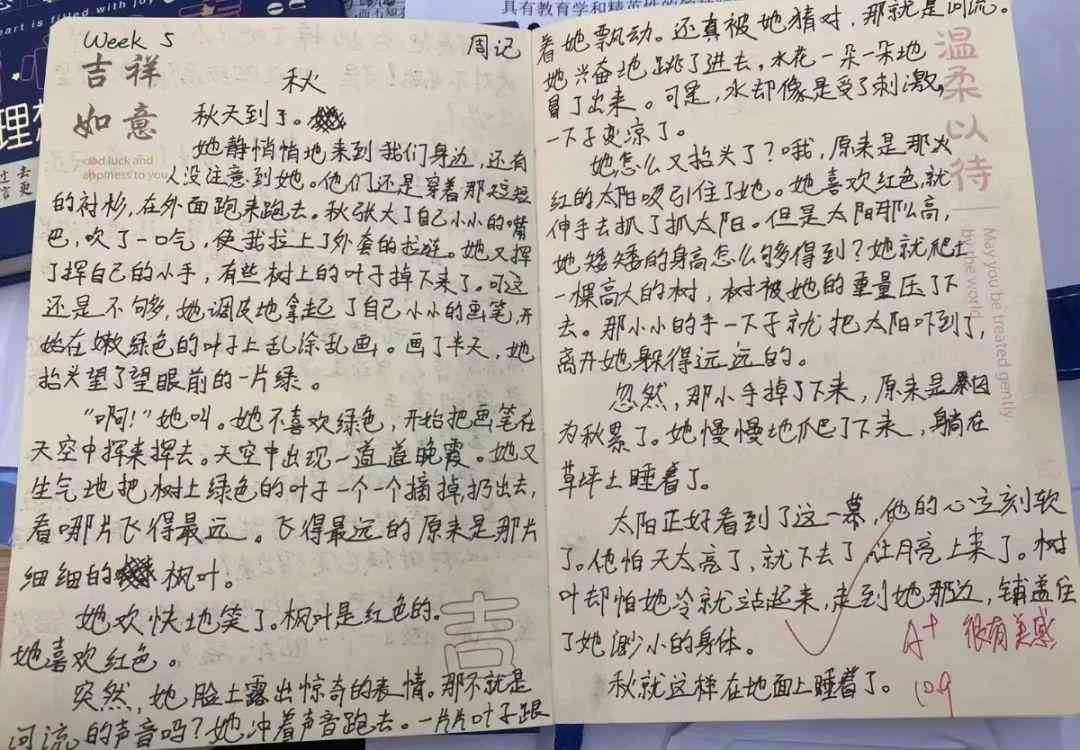 art is filled with joy
理想
具有教育学和精英性的
Week 5
周记
吉祥
如意
good luck and
happiness to you
秋
秋天到了。
她静悄悄地来到我们身边,还有
人没注意到她。他们还是穿着那短短
的衬衫,在外面跑来跑去。秋张大了自己小小的嘴
巴,吹了一口气,使我拉上了外套的拉链。她又挥
了挥自己的小手,有些树上的叶子掉下来了。可这
还是不够,她调皮地拿起了自己小小的画笔,开
始在嫩绿色的叶子上乱涂乱画。画了半天,她
抬头望了望眼前的一片绿。
“啊!”她叫。她不喜欢绿色,开始把画笔在
天空中挥来挥去。天空中出现一道道晚霞。她又
生气地把树上绿色的叶子一个一个摘掉扔出去,
看哪片飞得最远。飞得最远的原来是那片
细细的枫叶。
她欢快地笑了。枫叶是红色的。
她喜欢红色。
吉
突然,她脸上露出惊奇的表情。那不就是
河流的声音吗?她冲着声音跑去。一片片叶子跟
着她飘动。还真被她猜对,那就是河流。
她兴奋地跳了进去,水花一朵一朵地
冒了出来。可是,水却像是受了刺激,
一下子变凉了。
她怎么又抬头了?哦,原来是那火
红的太阳吸引住了她。她喜欢红色,就
伸手去抓了抓太阳。但是太阳那么高,
她矮矮的身高怎么够得到?她就爬上
一棵高大的树,树被她的重量压了下
去。那小小的手一下子就把太阳吓到了,
离开她躲得远远的。
忽然,那小手掉了下来,原来是因
为秋累了。她慢慢地爬了下来,躺在
草坪上睡着了。
太阳正好看到了这一幕,他的心立刻软
了。他怕天太亮了,就下去了让月亮上来了。树
叶却怕她冷就站起来,走到她那边,铺盖住
了她渺小的身体。
秋就这样在地面上睡着了。
温柔以待
May you be treated gently
by the world
A+ 很有美感
10.9